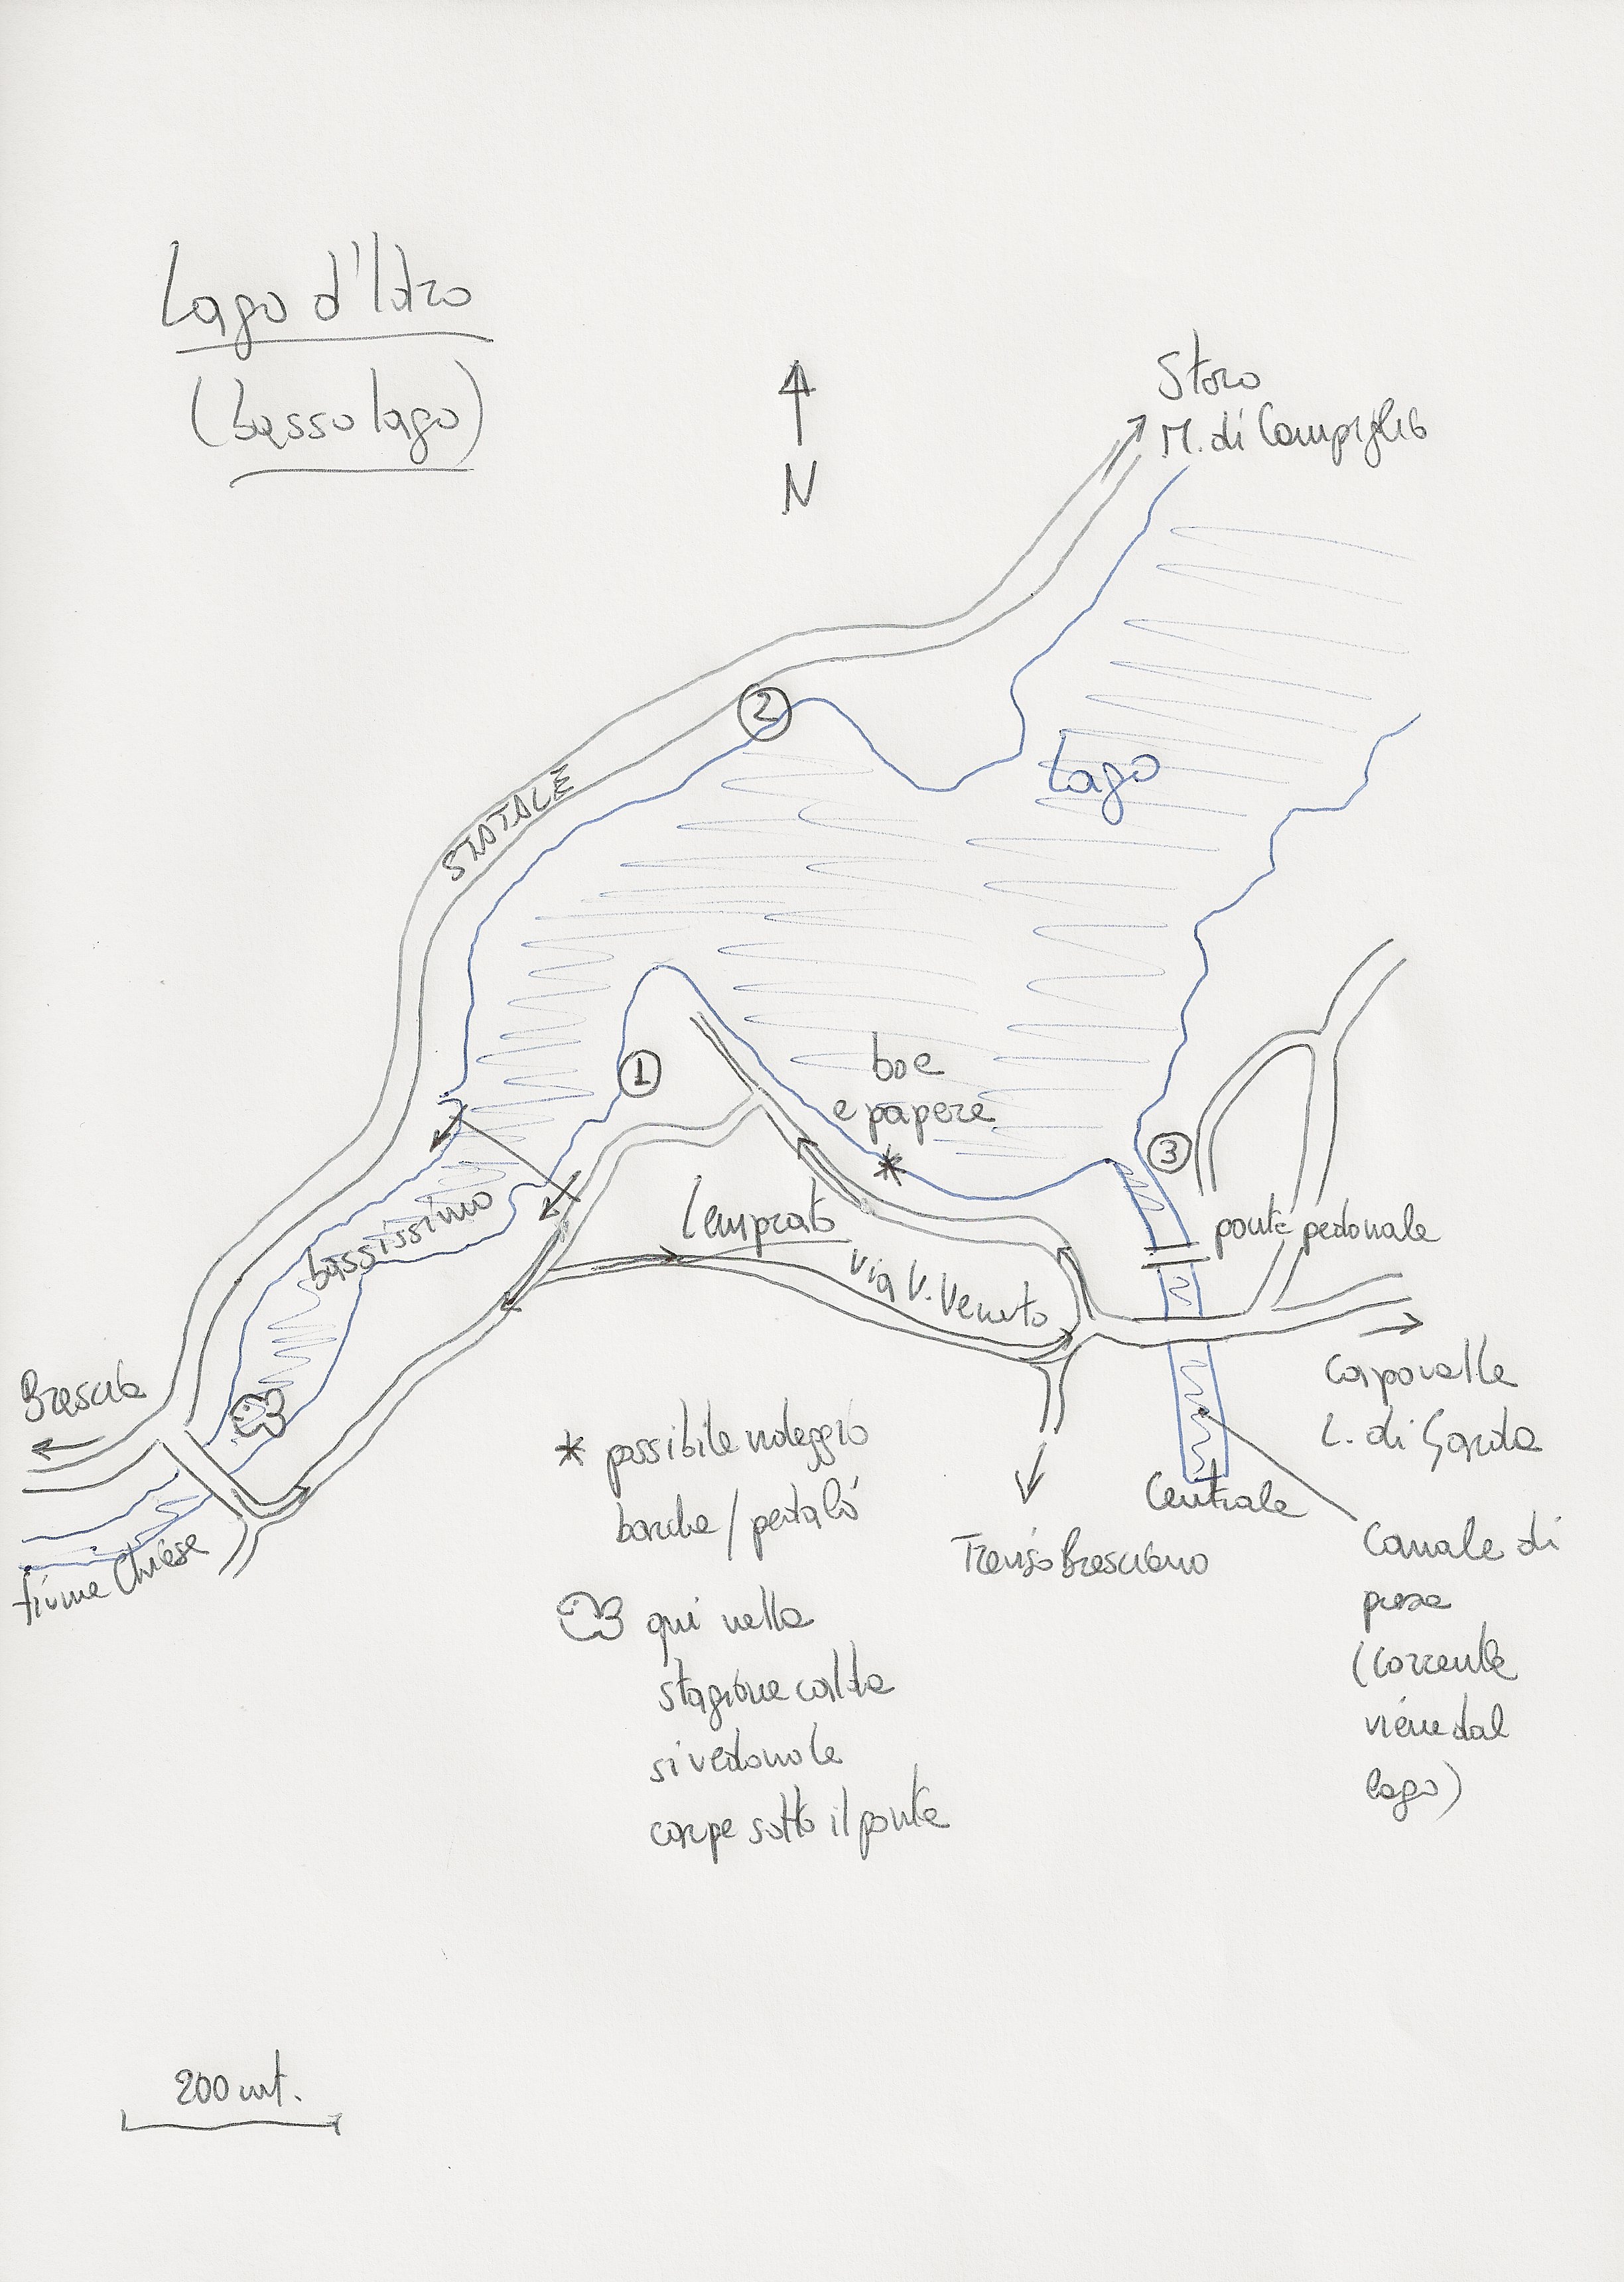 Lago d'Idro
(basso lago)
N
Storo
M. di Campiglio
STATALE
2
Lago
1
boe
e papere
3
Lemprato
ponte pedonale
via V. Veneto
bassissimo
Brescia
Capovalle
L. di Garda
* possibile noleggio
barche/pedalò
Centrale
Treviso Bresciano
fiume Chiese
Canale di
presa
(corrente
viene dal
lago)
qui nella
stagione calda
si vedono le
carpe sotto il ponte
200 mt.